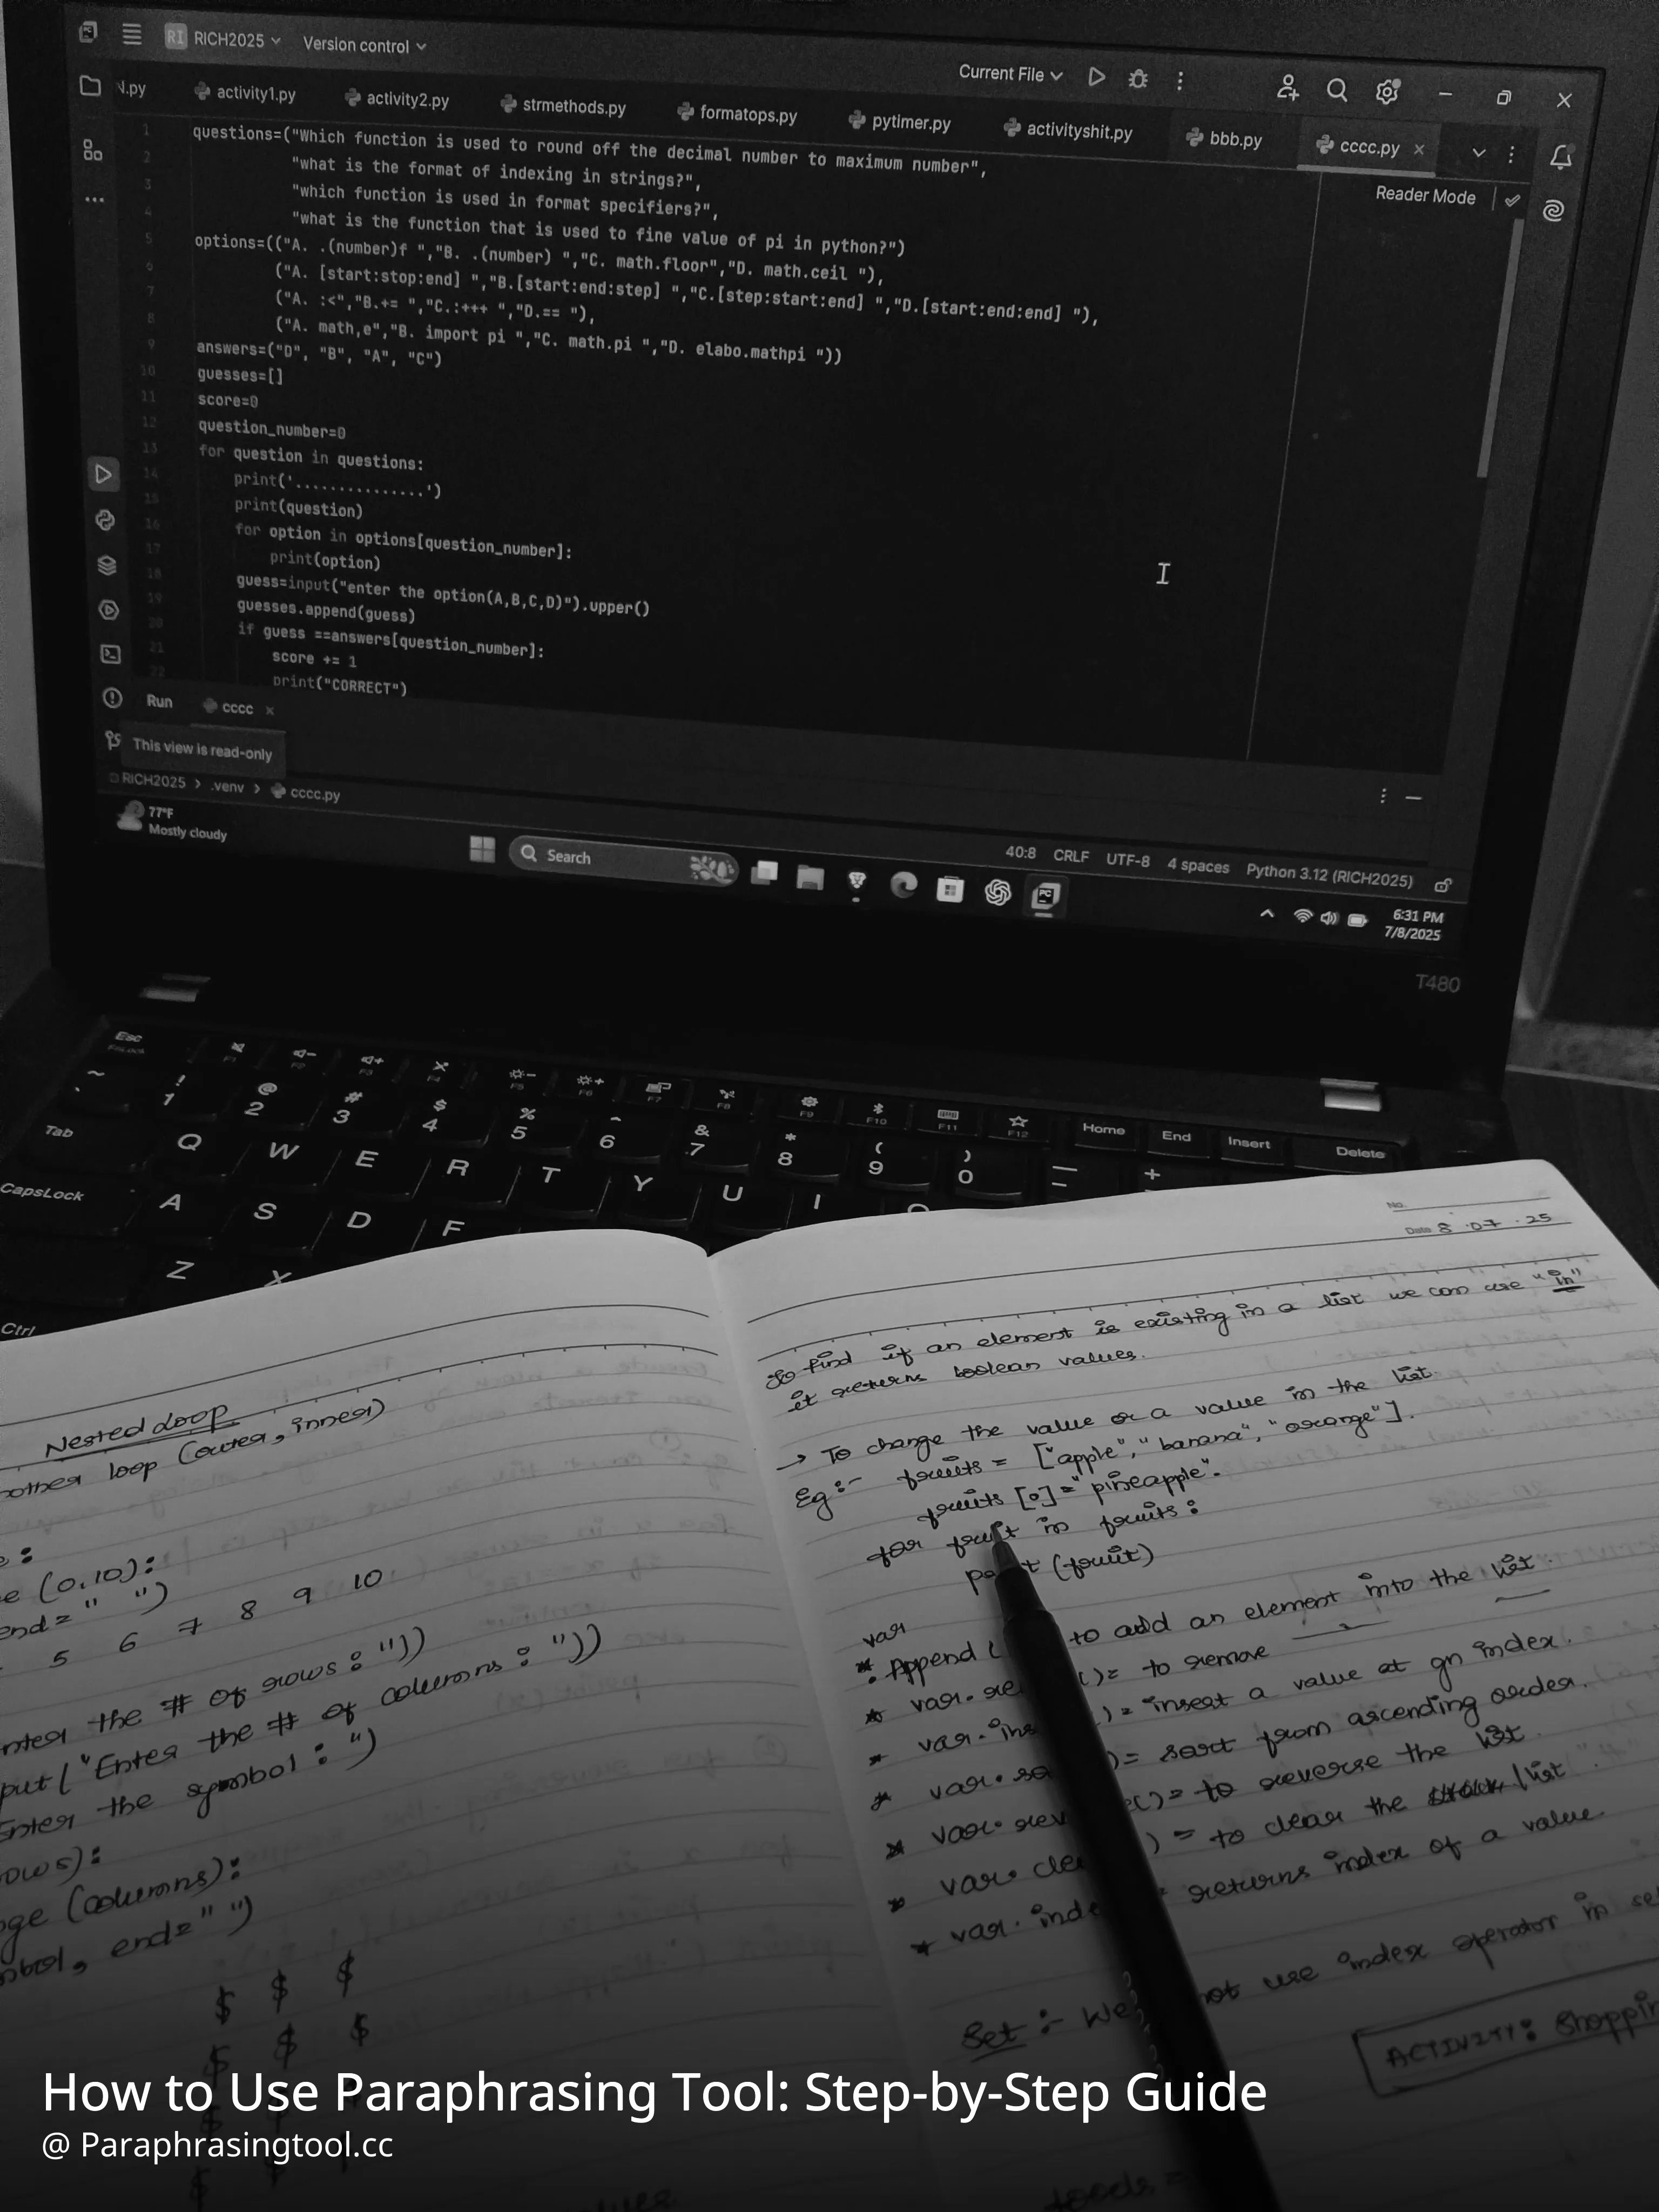 RI RICH2025 Version control
Current File
.py activity1.py activity2.py strmethods.py formatops.py pytimer.py activityshit.py bbb.py cccc.py
Reader Mode
1 questions=("Which function is used to round off the decimal number to maximum number",
2 "what is the format of indexing in strings?",
3 "which function is used in format specifiers?",
4 "what is the function that is used to fine value of pi in python?")
5 options=(("A. .(number)f ","B. .(number) ","C. math.floor","D. math.ceil "),
6 ("A. [start:stop:end] ","B.[start:end:step] ","C.[step:start:end] ","D.[start:end:end] "),
7 ("A. :<","B.+= ","C.:+++ ","D.== "),
8 ("A. math,e","B. import pi ","C. math.pi ","D. elabo.mathpi "))
9 answers=("D", "B", "A", "C")
10 guesses=[]
11 score=0
12 question_number=0
13 for question in questions:
14 print('...............')
15 print(question)
16 for option in options[question_number]:
17 print(option)
18 guess=input("enter the option(A,B,C,D)").upper()
19 guesses.append(guess)
20 if guess ==answers[question_number]:
21 score += 1
22 print("CORRECT")
Run cccc
This view is read-only
RICH2025 > .venv > cccc.py
40:8 CRLF UTF-8 4 spaces Python 3.12 (RICH2025)
77°F
Mostly cloudy
Search
6:31 PM
7/8/2025
T480
Esc F1 F2 F3 F4 F5 F6 F7 F8 F9 F10 F11 F12 Home End Insert Delete
~ ! 1 @ 2 # 3 $ 4 % 5 ^ 6 & 7 * 8 ( 9 ) 0 + =
Tab Q W E R T Y U I O
CapsLock A S D F
Z X
Ctrl
Nested Loop
another loop (outer, inner)
e :
e (0,10):
end=" ")
5 6 7 8 9 10
nter the # of rows : "))
put("Enter the # of columns : "))
Enter the symbol : ")
ows):
nge (columns):
mbol, end=" ")
$ $ $
$ $ $
No.
Date 8 .07 .25
To find if an element is existing in a list we can use "in"
it returns boolean values.
→ To change the value or a value in the list.
Eg:- fruits = ["apple", "banana", "orange"].
fruits [0]="pineapple".
for fruit in fruits :
(fruit)
var
* . Append ( to add an element into the list.
* var. re ()= to remove
* var. ins )= insert a value at gn index.
* var. so )= sort from ascending order.
* var. rev e()= to reverse the list.
* var. clea ) = to clear the /list.
* var. inde = returns index of a value.
Set :- We not use index operator in se
ACTIVITY: Shoppin
How to Use Paraphrasing Tool: Step-by-Step Guide
@ Paraphrasingtool.cc